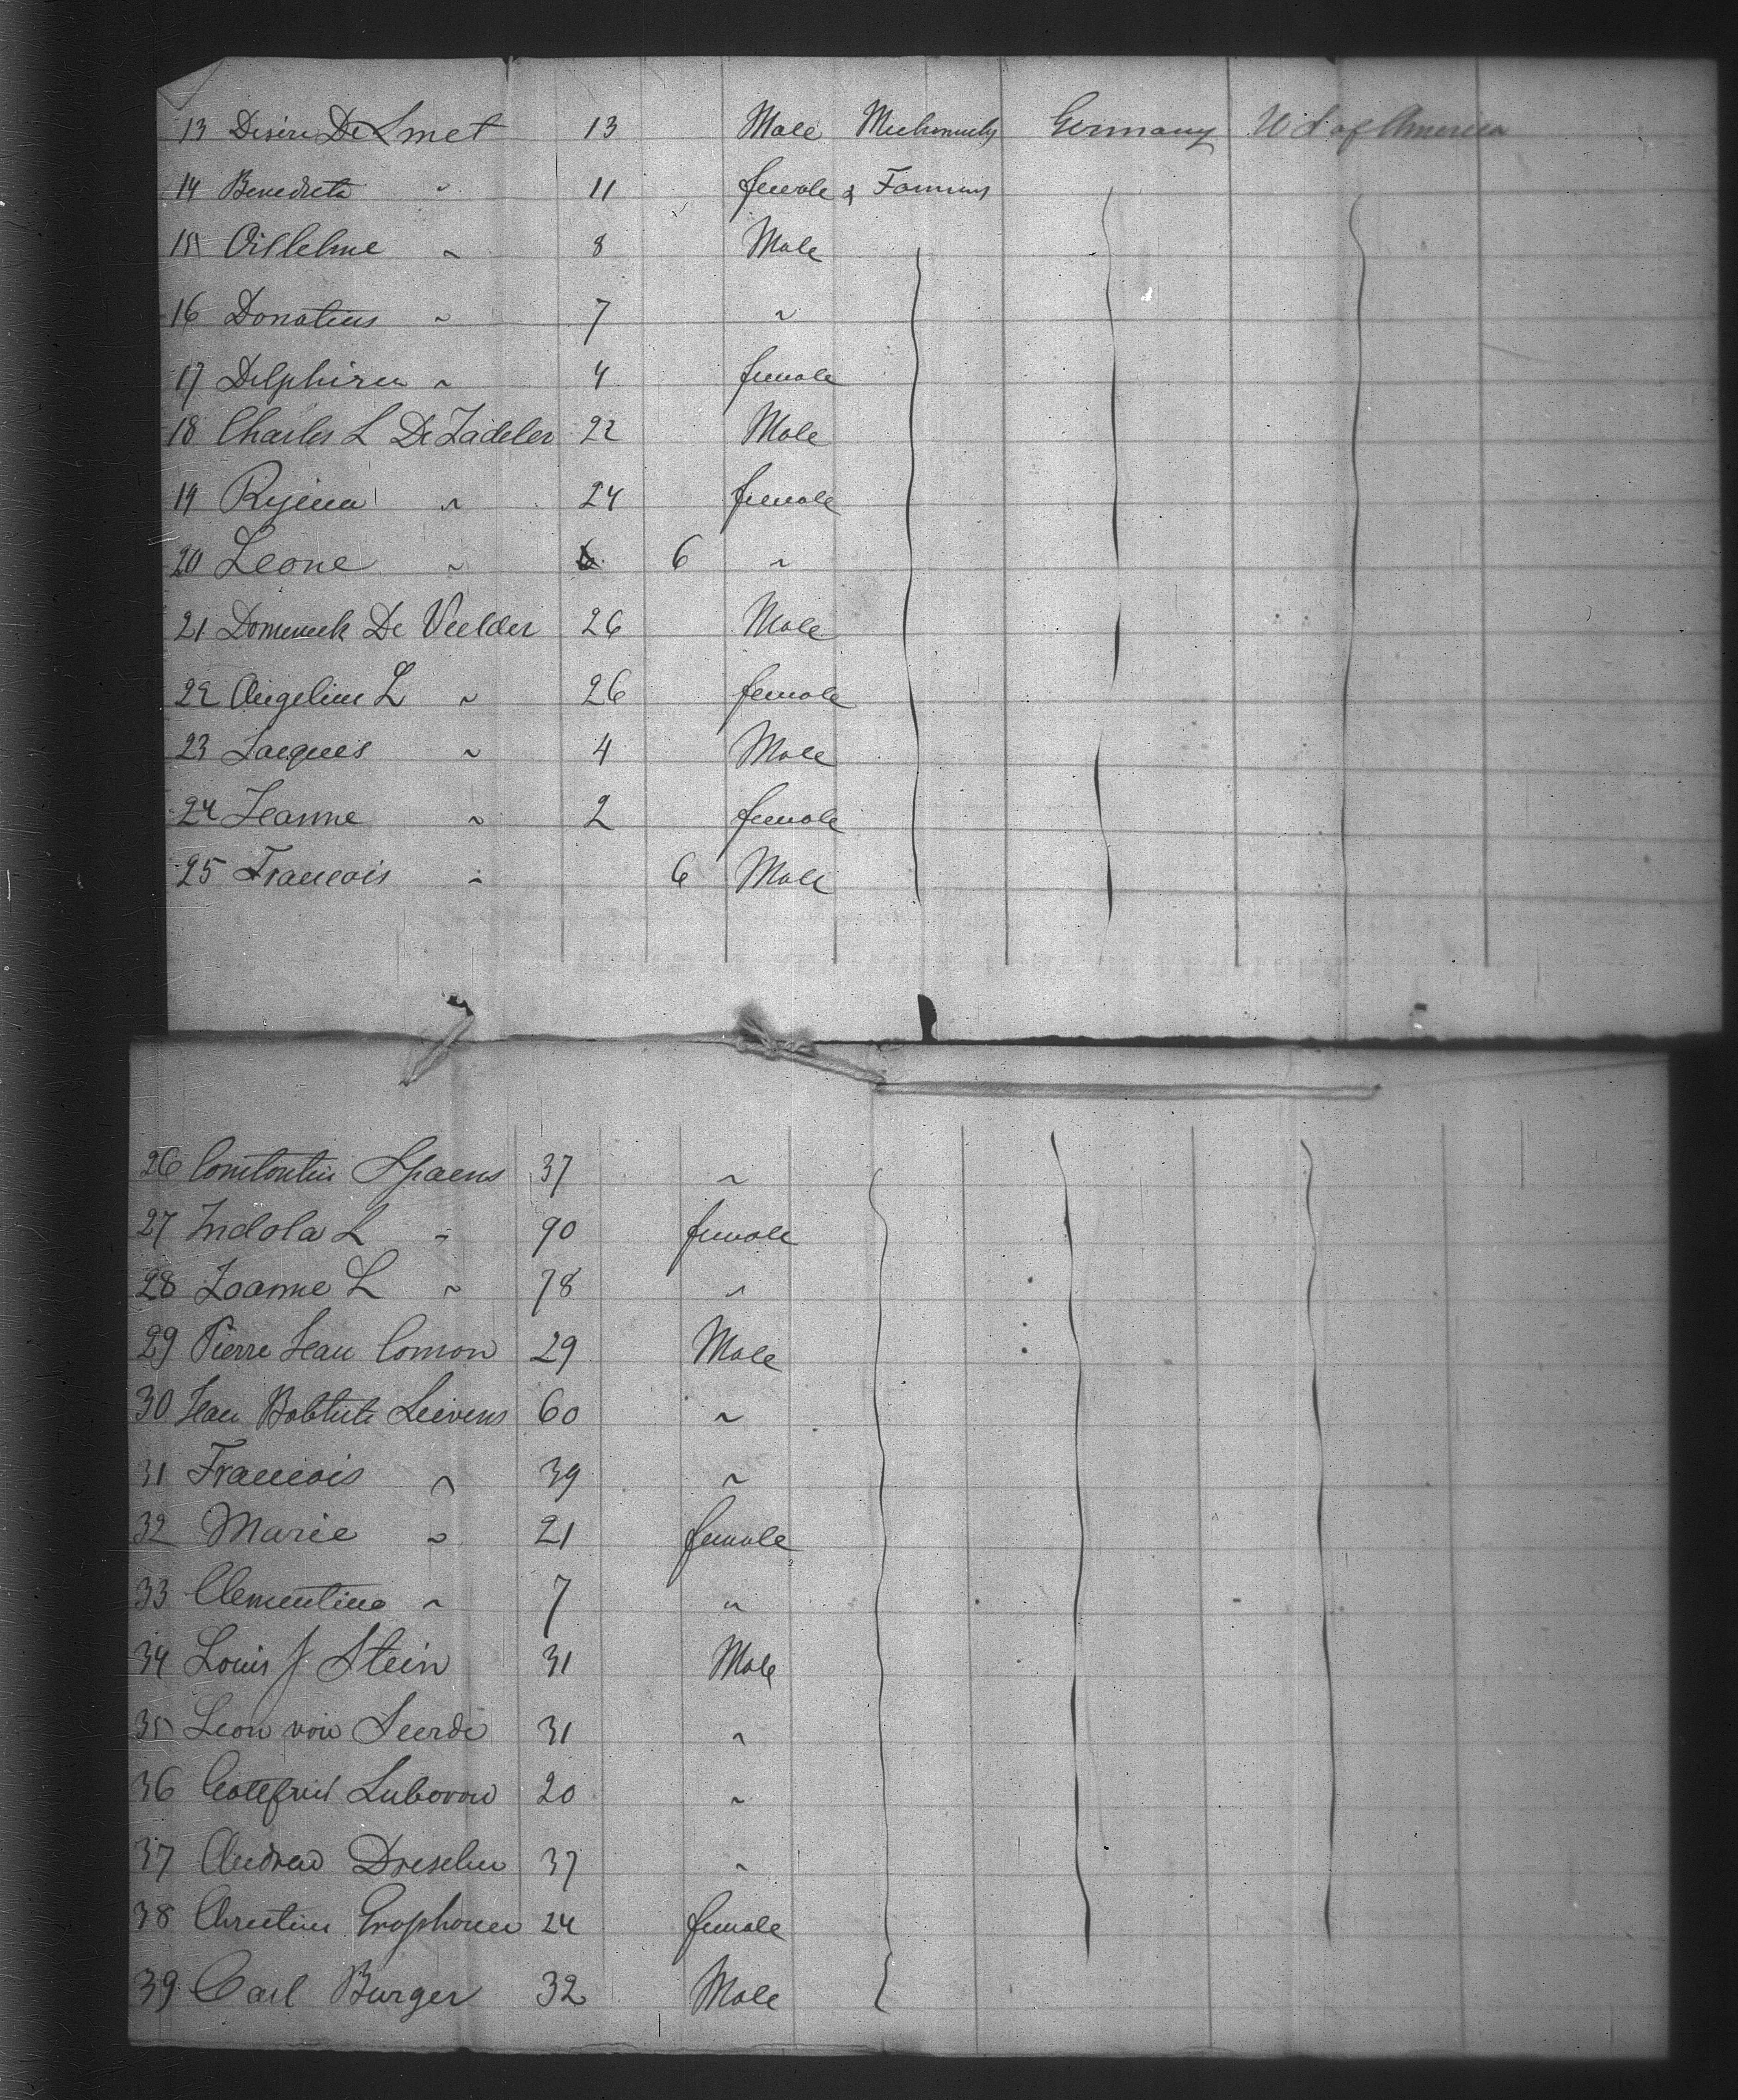 13 Desire De Smet 13 Male Mechanicks Germany U S of America
14 Benedicta " 11 female & Farmers
15 " 8 Male
16 Donatius " 7 "
17 Delphina " 4 female
18 Charles L De Zadeler 22 Male
19 Regina " 24 female
20 Leone " 6 "
21 Domenick De Veelder 26 Male
22 Angeline L " 26 female
23 Jacques " 4 Male
24 Jeanne " 2 female
25 Francois " 6 Male
26 Spaens 37 "
27 L " 90 female
28 Joanne L " 78 "
29 Pierre Jean Comon 29 Male
30 Jean Babtiste Lievens 60 "
31 Francois " 39 "
32 Marie " 21 female
33 Clementine " 7 "
34 Louis J Stein 31 Male
35 Leon von 31 "
36 Gottfried 20 "
37 Andrew 37 "
38 24 female
39 Carl Burger 32 Male